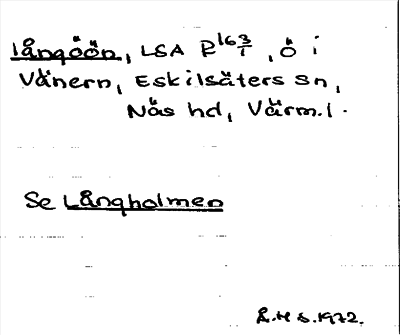 långöön, LSA P 163/1, ö i
Vänern, Eskilsäters sn,
Näs hd, Värml.
Se Långholmen
R.H.S.1972.